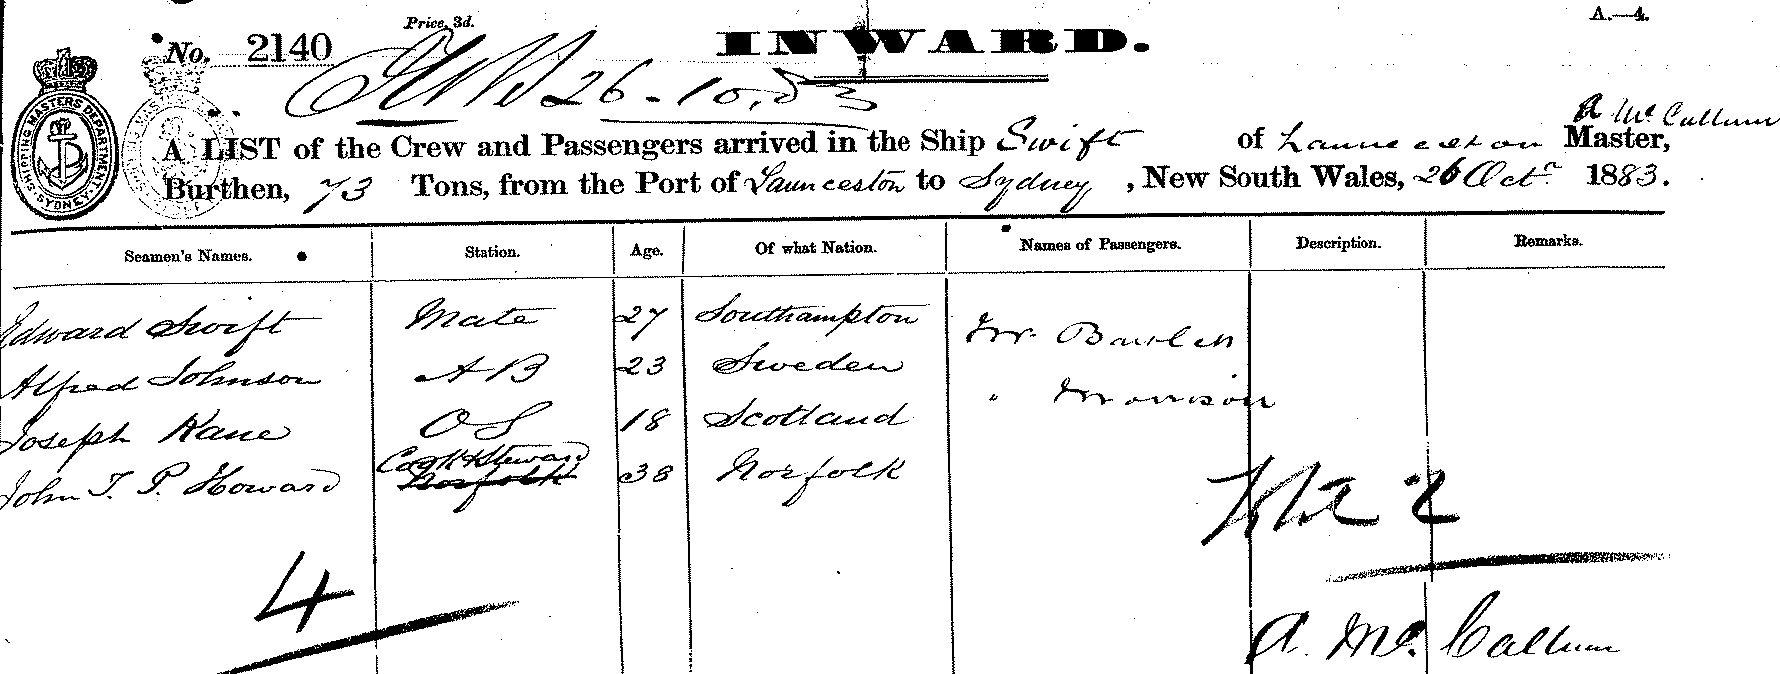 Price, 3d.
A.—4.
No. 2140
INWARD.
26-10.83
SHIPPING MASTERS DEPARTMENT SYDNEY
A McCallum
A LIST of the Crew and Passengers arrived in the Ship Swift of Launceston Master,
Burthen, 73 Tons, from the Port of Launceston to Sydney, New South Wales, 26 Octr 1883.
Seamen's Names. Station. Age. Of what Nation. Names of Passengers. Description. Remarks.
Edward Swift Mate 27 Southampton Mr Bartlett
Alfred Johnson AB 23 Sweden " Morrison
Joseph Kane OS 18 Scotland
Cook & Steward
John T. P. Howard Norfolk 38 Norfolk
2
4
A. McCallum